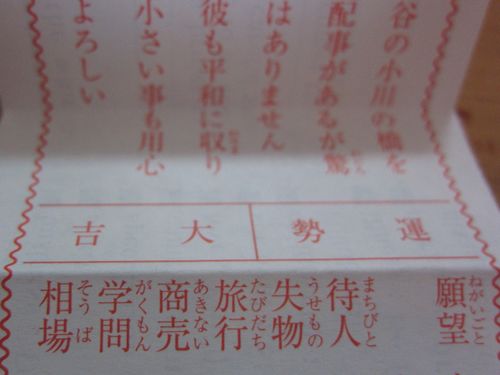 谷の小川の橋を
配事があるが驚
はありません
彼も平和に収り
小さい事も用心
よろしい
運勢 大吉
願望 ねがいごと
待人 まちびと
失物 うせもの
旅行 たびだち
商売 あきない
学問 がくもん
相場 そうば